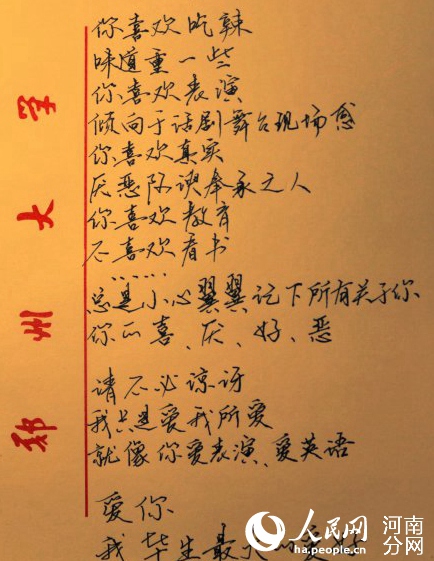 你喜欢吃辣
味道重一些
你喜欢表演
倾向于话剧舞台现场感
你喜欢真实
厌恶阿谀奉承之人
你喜欢教育
不喜欢看书
……
总是小心翼翼记下所有关于你
你的喜、厌、好、恶
请不必惊讶
我只是爱我所爱
就像你爱表演、爱英语
爱你
我毕生最大的爱好
郑州大学
人民网
河南分网
ha.people.cn